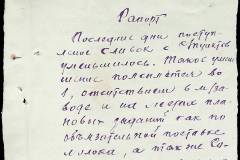 Рапорт
Последние дни поступ-
ление сливок с пунктов
уменьшилось. Такое умен
шение поясняется во
1, отсутствием в м/за-
воде и на местах пла-
новых заданий как по
обязательной поставке
молока, а также